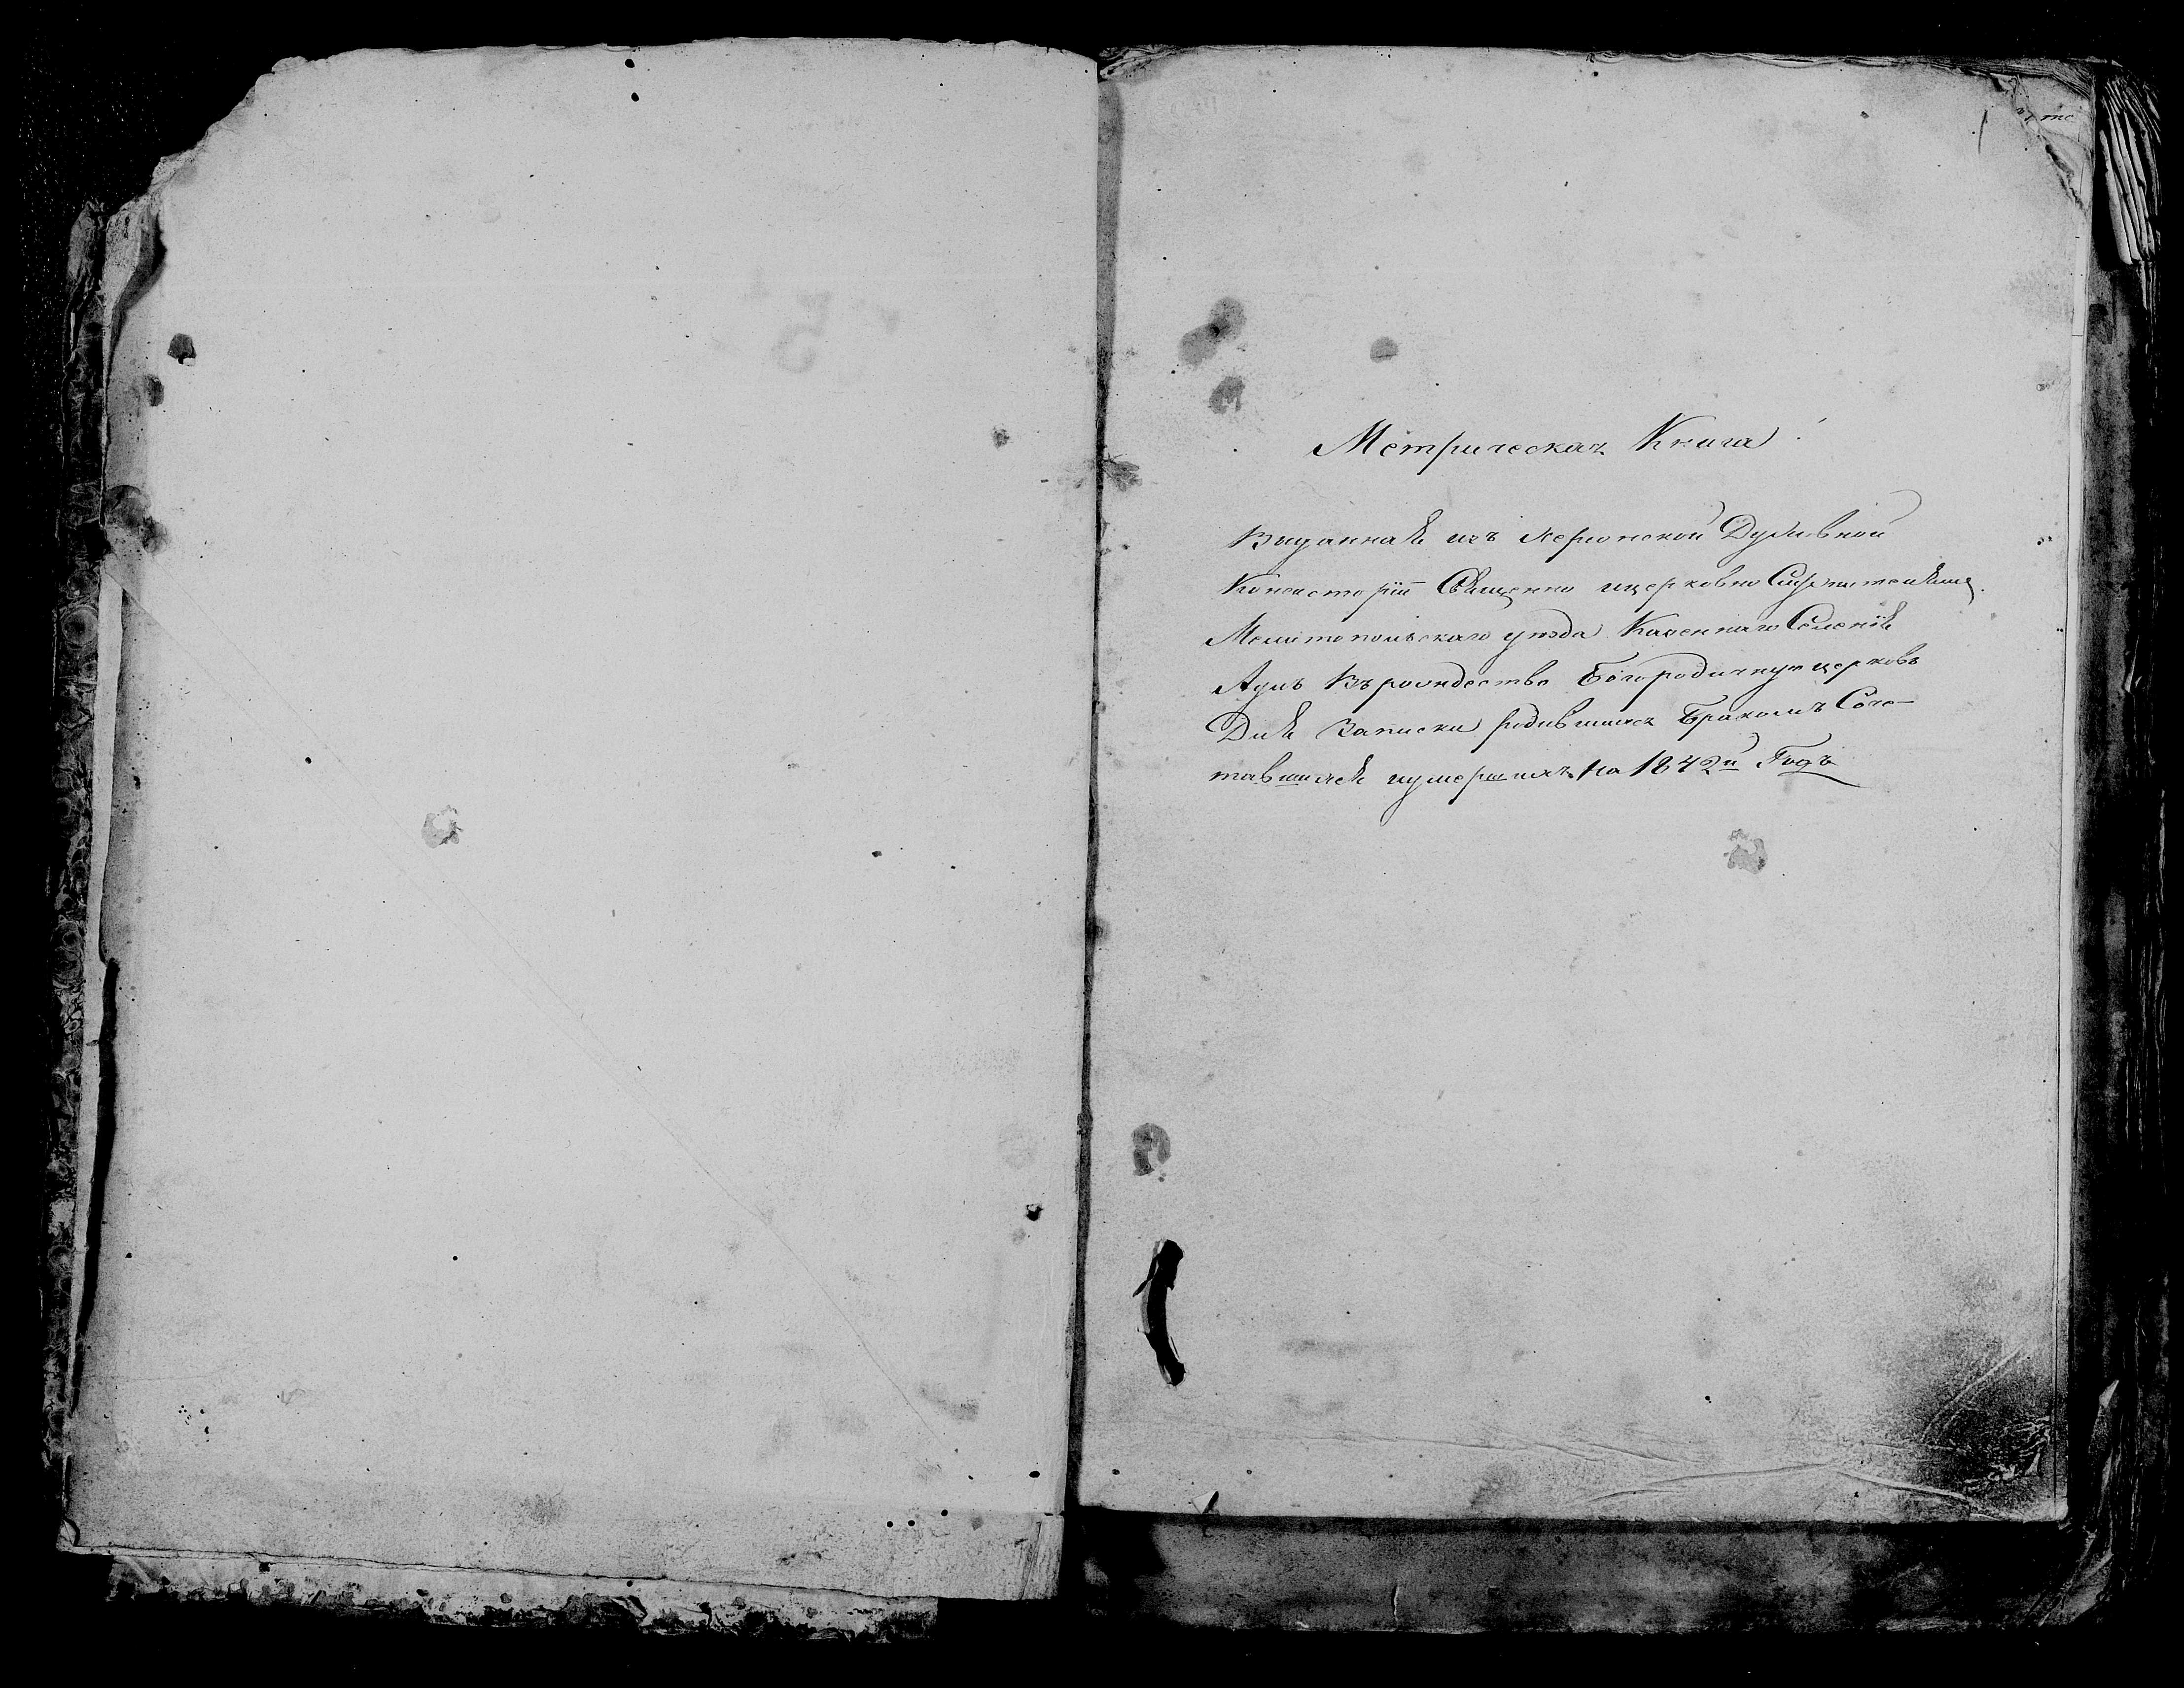 Метрическая Книга
Выданная изъ Херсонской Духовной
Консисторіи Священно ицерковно Служителямъ
Мелитопольскаго уезда Казеннаго Селенія
Въ рождество Богородичную церковь
Для Записки родившихся Бракомъ Соче-
тавшихся иумершихъ На 1842й Годъ